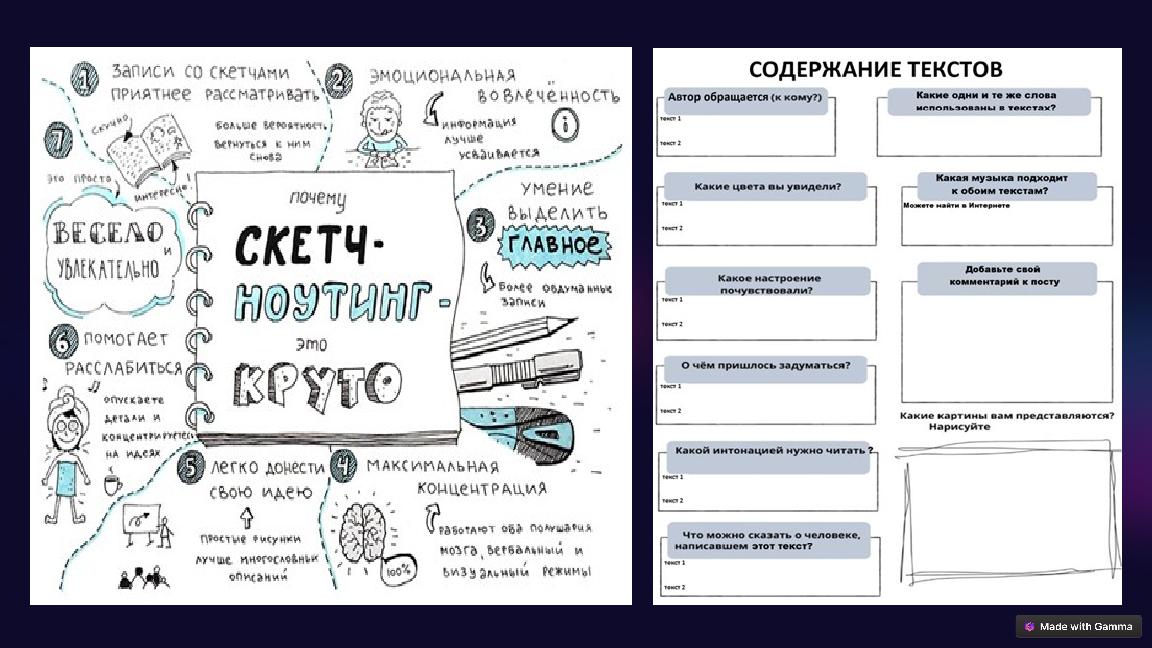 1 ЗАПИСИ СО СКЕТЧАМИ
ПРИЯТНЕЕ РАССМАТРИВАТЬ
БОЛЬШЕ ВЕРОЯТНОСТЬ
ВЕРНУТЬСЯ К НИМ
СНОВА
2 ЭМОЦИОНАЛЬНАЯ
ВОВЛЕЧЁННОСТЬ
ИНФОРМАЦИЯ
ЛУЧШЕ
УСВАИВАЕТСЯ
i
7
СКУЧНО
ИНТЕРЕСНО
ЭТО ПРОСТО
ВЕСЕЛО
И
УВЛЕКАТЕЛЬНО
ПОЧЕМУ
СКЕТЧ-
НОУТИНГ-
ЭТО
КРУТО
3 УМЕНИЕ
ВЫДЕЛИТЬ
ГЛАВНОЕ
БОЛЕЕ ОБДУМАННЫЕ
ЗАПИСИ
6 ПОМОГАЕТ
РАССЛАБИТЬСЯ
ОПУСКАЕТЕ
ДЕТАЛИ И
КОНЦЕНТРИРУЕТЕСЬ
НА ИДЕЯХ
5 ЛЕГКО ДОНЕСТИ
СВОЮ ИДЕЮ
ПРОСТЫЕ РИСУНКИ
ЛУЧШЕ МНОГОСЛОВНЫХ
ОПИСАНИЙ
4 МАКСИМАЛЬНАЯ
КОНЦЕНТРАЦИЯ
РАБОТАЮТ ОБА ПОЛУШАРИЯ
МОЗГА, ВЕРБАЛЬНЫЙ И
ВИЗУАЛЬНЫЙ РЕЖИМЫ
100%
СОДЕРЖАНИЕ ТЕКСТОВ
Автор обращается (к кому?)
текст 1
текст 2
Какие цвета вы увидели?
текст 1
текст 2
Какое настроение
почувствовали?
текст 1
текст 2
О чём пришлось задуматься?
текст 1
текст 2
Какой интонацией нужно читать ?
текст 1
текст 2
Что можно сказать о человеке,
написавшем этот текст?
текст 1
текст 2
Какие одни и те же слова
использованы в текстах?
Какая музыка подходит
к обоим текстам?
Можете найти в Интернете
Добавьте свой
комментарий к посту
Какие картины вам представляются?
Нарисуйте
Made with Gamma